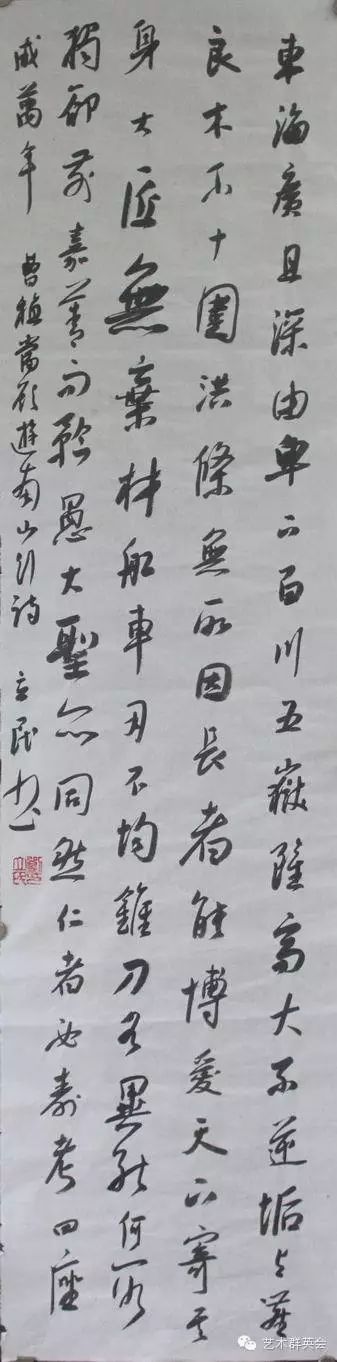 東海廣且深由卑下百川五嶽雖高大不逆垢與塵
良木不十圍洪條無所因長者能博愛天下寄其
身大匠無棄材船車用不均錐刀各異能何所
獨卻前嘉善而矜愚大聖亦同然仁者必壽考四座
咸萬年 曹植當欲遊南山行詩 立民书
艺术群英会